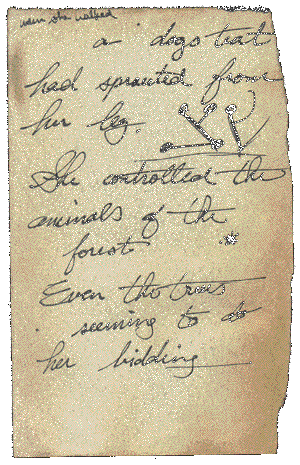 when she walked
a dogs that
had sprouted from
her leg.
She controlled the
animals of the
forest
Even the trees
seeming to do
her bidding